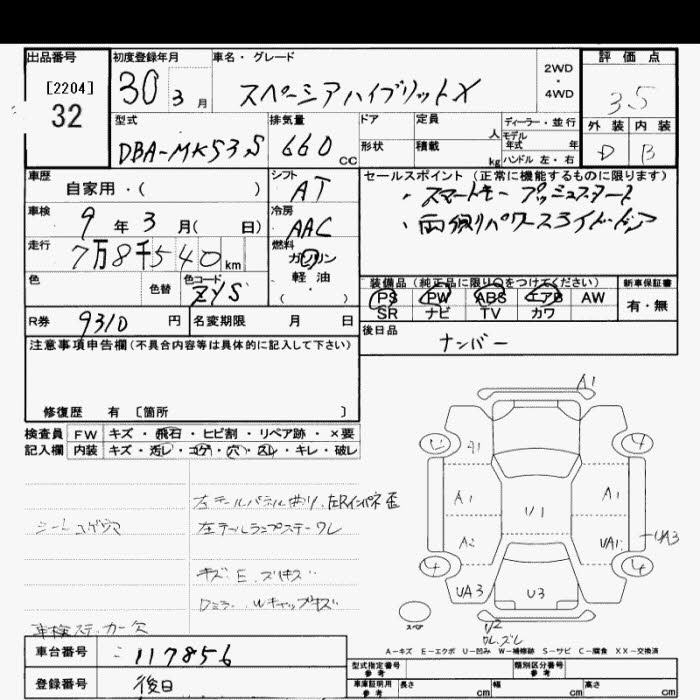 出品番号 初度登録年月 車名・グレード 2WD・4WD 評価点
[2204] 30 3月 スペーシアハイブリットX 3.5
32
型式 排気量 ドア 定員 人 ディーラー・並行 外装 内装
DBA-MK53S 660 cc 形状 積載 kg モデル年式 年 ハンドル 左・右 D B
車歴 自家用・( ) シフト AT セールスポイント (正常に機能するものに限ります)
・スマートキー プッシュスタート
車検 9年3月( 日) 冷房 AAC ・両側パワースライドドア
走行 7万8千540km 燃料 ガソリン
軽油
・( )
色 色替 色コード ZYS 装備品 (純正品に限り○をつけてください) 新車保証書
PS PW ABS エアB AW 有・無
SR ナビ TV カワ
R券 9310円 名変期限 月 日 後日品
ナンバー
注意事項申告欄(不具合内容等は具体的に記入して下さい)
修復歴 有 〔箇所 〕
検査員 FW キズ・飛石・ヒビ割・リペア跡・×要
記入欄 内装 キズ・汚レ・コゲ・穴・スレ・キレ・破レ
左テールパネル曲り、左Rインパネ歪
左テールランプステーワレ
キズ E
車検ステッカー欠
A1
A1
A1 A1
U1
A2 UA1 UA3
UA3 U3
U2
スペア
A-キズ E-エクボ U-凹み W-補修跡 S-サビ C-腐食 XX-交換済
車台番号 117856
登録番号 後日
型式指定番号 参考 類別区分番号 参考
車庫証明用 参考 長さ cm 幅 cm 高さ cm